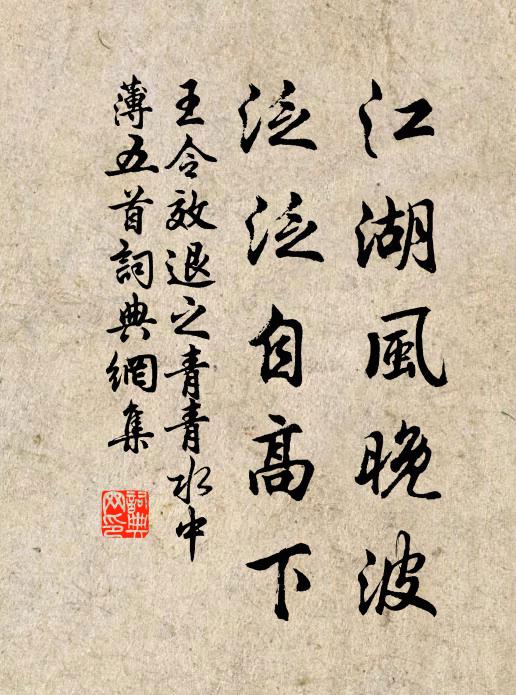 江湖風晚波
泛泛自高下
王令效退之青青水中
薄五首詞典網集
詞典網印